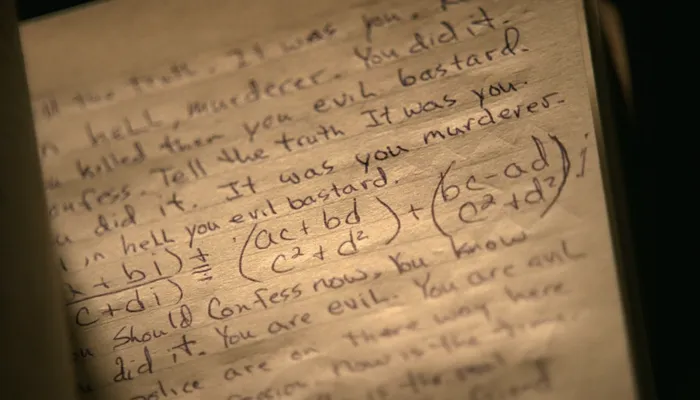 the truth. It was you.
hell, murderer. You did it.
killed them you evil bastard.
confess. Tell the truth It was you.
did it. It was you murderer.
in hell you evil bastard.
+ bi) ÷ (ac + bd) + (bc - ad) i
c + di) = c² + d² c² + d²
Should Confess now. You know
did it. You are evil. You are evil
police are on there way here
now is the time
is the